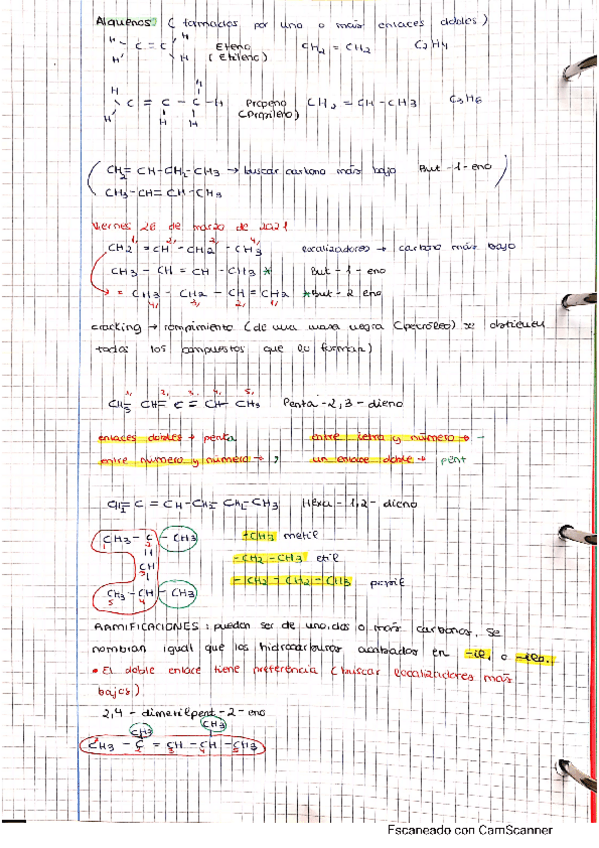 Alquenos (formados por uno o más enlaces dobles)
H H
C = C Eteno CH2 = CH2 C2H4
H H (Etileno)
H H
C = C - C - H Propeno CH2 = CH - CH3 C3H6
H H H (Propileno)
CH2 = CH - CH2 - CH3 → buscar carbono más bajo But - 1 - eno
CH3 - CH = CH - CH3
Viernes 26 de marzo de 2021
1, 2, 3, 4,
CH2 = CH - CH2 - CH3 localizadores → carbono más bajo
CH3 - CH = CH - CH3 * But - 1 - eno
= CH3 - CH2 - CH = CH2 * But - 2 eno
4, 3, 2, 1,
cracking → rompimiento (de una masa negra (petróleo) se obtienen
todos los compuestos que lo forman)
1, 2, 3, 4, 5,
CH3 CH = C = CH CH3 Penta - 2,3 - dieno
enlaces dobles → penta entre letra y número → -
entre número y número → , un enlace doble → pent
CH2 = C = CH - CH2 - CH2 - CH3 Hexa - 1,2 - dieno
CH3 - C - CH3 - CH3 metil
1 2
CH - CH2 - CH3 etil
3
- CH2 - CH2 - CH3
CH3 - CH - CH3
5 4
RAMIFICACIONES: pueden ser de uno, dos o más carbonos, se
nombran igual que los hidrocarburos acabados en -il, o -ilo.
• El doble enlace tiene preferencia (buscar localizadores más
bajos)
2,4 - dimetilpent - 2 - eno
CH3 CH3
CH3 - C = CH - CH - CH3
1 2 3 4 5
Escaneado con CamScanner